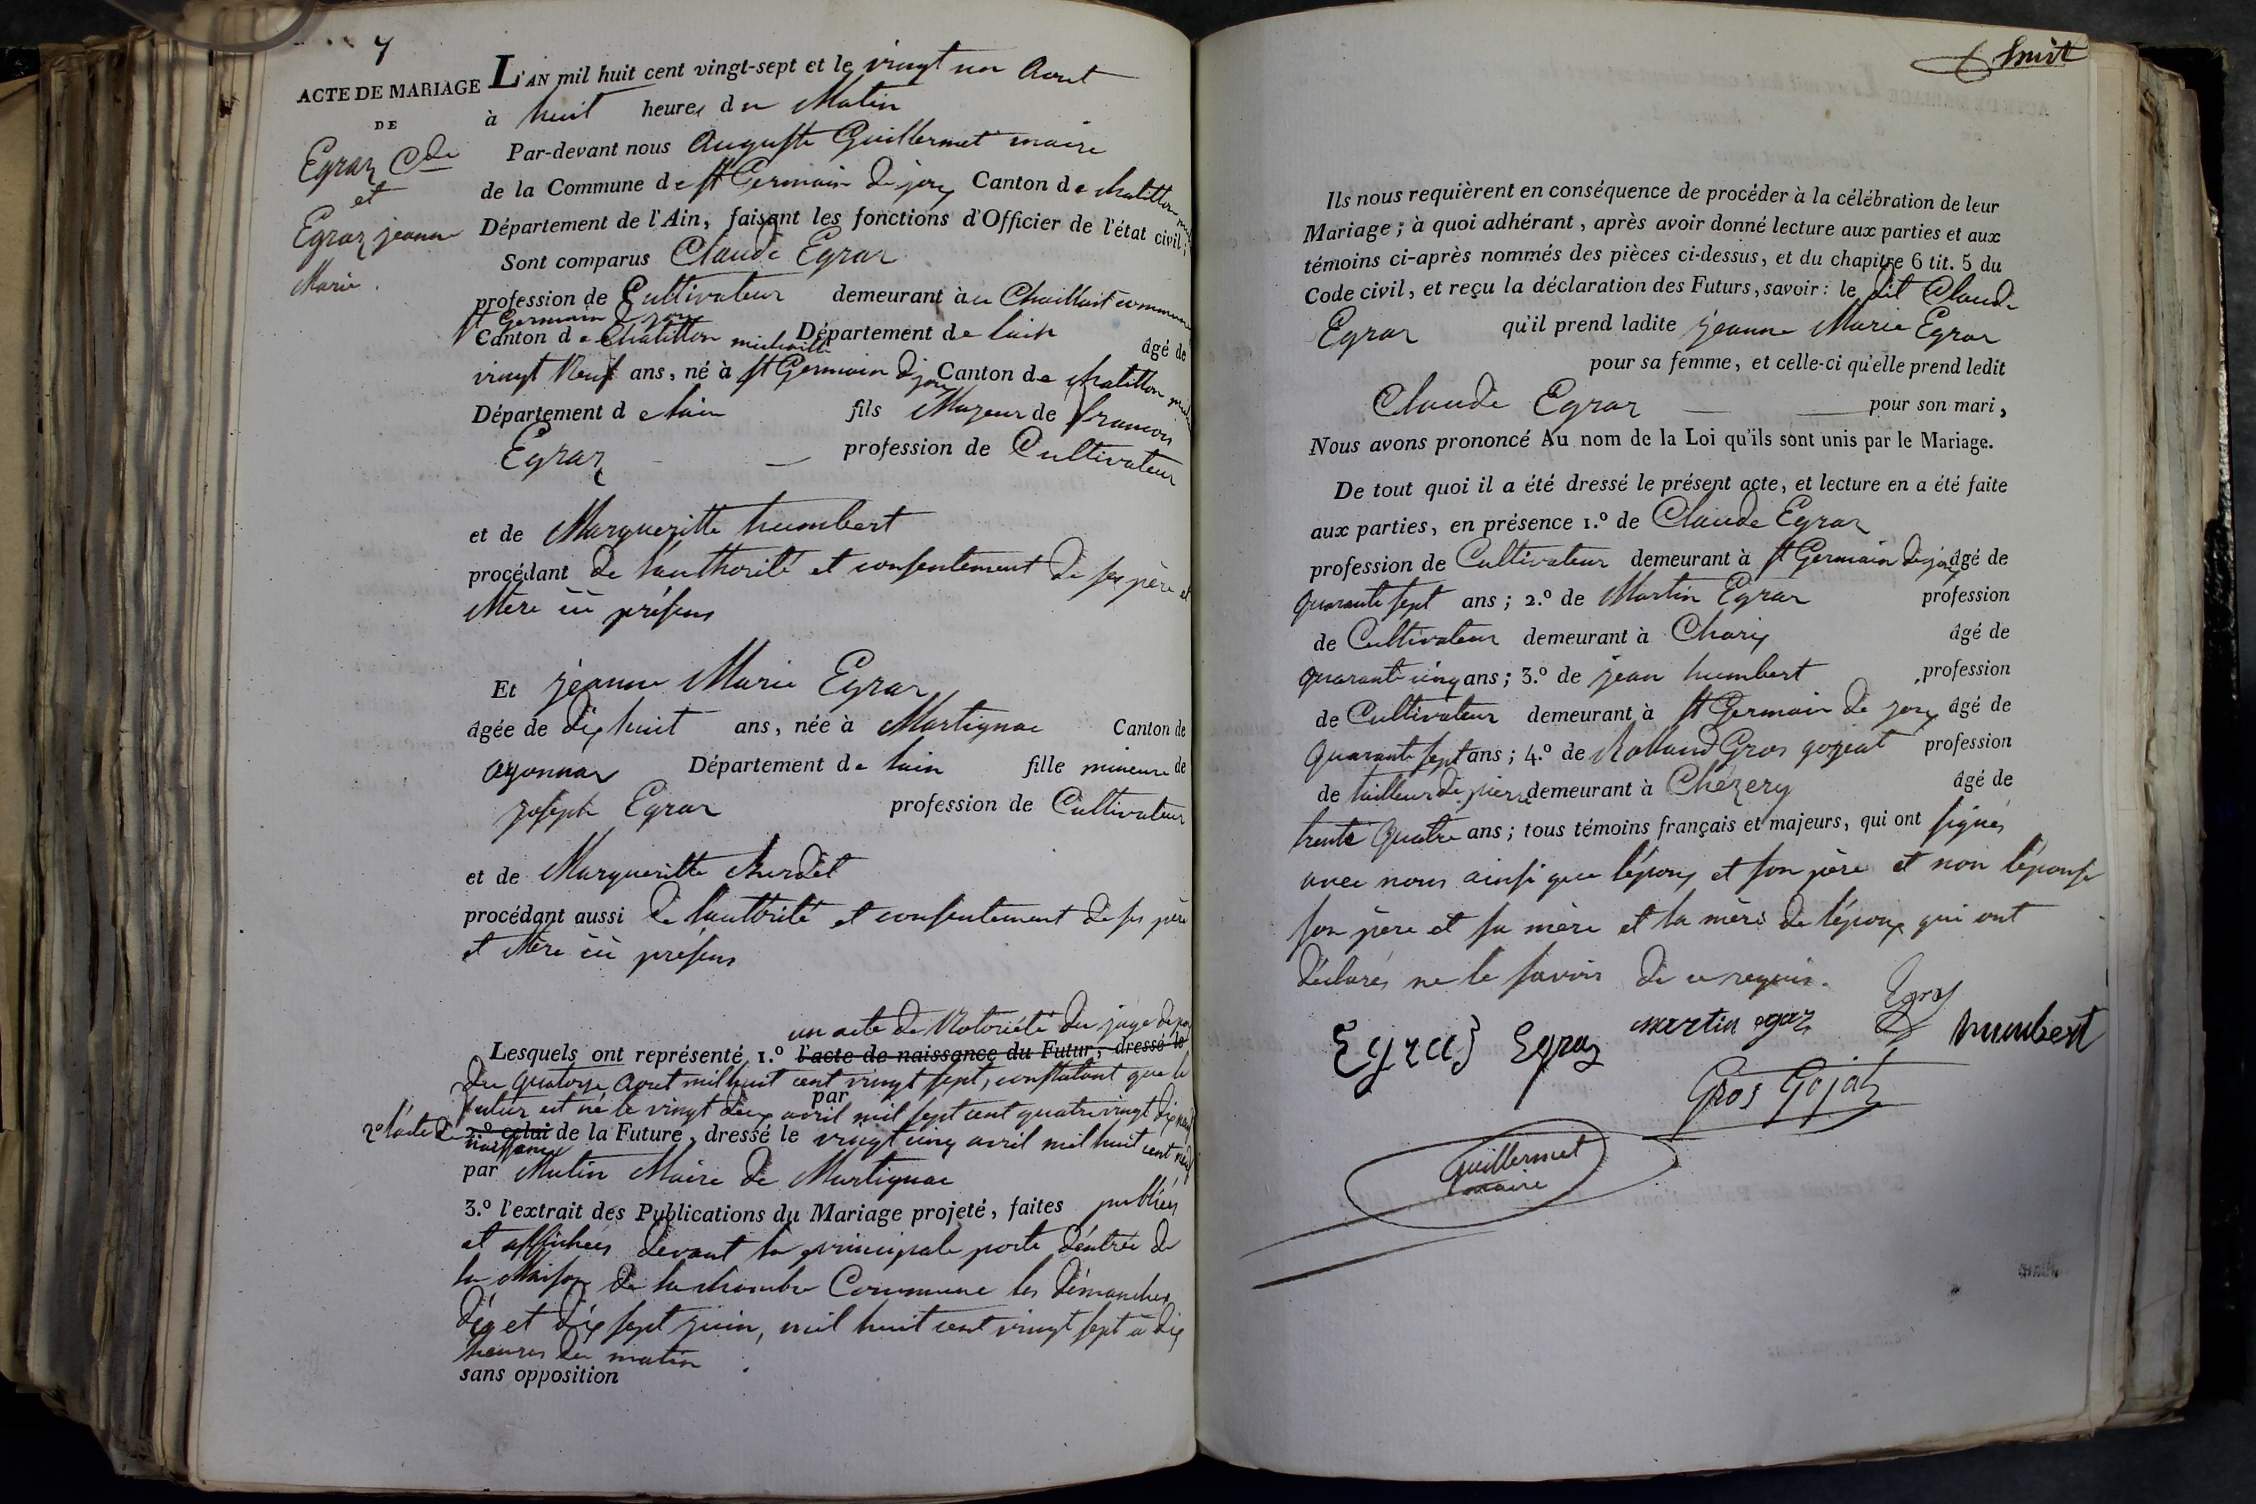 7
ACTE DE MARIAGE
DE
Egraz Cde
et
Egraz jeanne
Marie.
L'AN mil huit cent vingt-sept et le vingt un Aout
à huit heures du Matin
Par-devant nous Auguste Guillermet maire
de la Commune de st Germain de joux Canton de chatillon
Département de l'Ain, faisant les fonctions d'Officier de l'état civil;
Sont comparus Claude Egraz
profession de Cultivateur demeurant à au Chaillait commune
st Germain de joux
Canton de Chatillon michaille Département de lain âgé de
vingt Neuf ans, né à st Germain de joux Canton de chatillon
Département de lain fils Majeur de francois
Egraz profession de Cultivateur
et de Margueritte humbert
procédant de lauthorité et consentement de ses père et
Mère ici présens
Et jeanne Marie Egraz
âgée de dix huit ans, née à Martignac Canton de
oyonnax Département de lain fille mineure de
joseph Egraz profession de Cultivateur
et de Margueritte
procédant aussi de lauthorité et consentement de ses père
et Mère ici présens
un acte de Notoriété du juge de paix
Lesquels ont représenté 1.º l'acte de naissance du Futur, dressé le
du quatorze Aout mil huit cent vingt sept, constatant que le
par
futur est né le vingt deux avril mil sept cent quatre vingt dix
2º l'acte de 2.º celui de la Future, dressé le vingt cinq avril mil huit cent neuf
naissance
par Mutin Maire de Martignac
3.º l'extrait des Publications du Mariage projeté, faites publiées
et affichées devant la principale porte d'entrée de
la Maison de la chambre Commune les dimanches
dix et dix sept juin, mil huit cent vingt sept à dix
heures du matin
sans opposition
huit
Ils nous requièrent en conséquence de procéder à la célébration de leur
Mariage; à quoi adhérant, après avoir donné lecture aux parties et aux
témoins ci-après nommés des pièces ci-dessus, et du chapitre 6 tit. 5 du
Code civil, et reçu la déclaration des Futurs, savoir: le dit Claude
Egraz qu'il prend ladite jeanne Marie Egraz
pour sa femme, et celle-ci qu'elle prend ledit
Claude Egraz pour son mari,
Nous avons prononcé Au nom de la Loi qu'ils sont unis par le Mariage.
De tout quoi il a été dressé le présent acte, et lecture en a été faite
aux parties, en présence 1.º de Claude Egraz
profession de Cultivateur demeurant à st Germain de joux âgé de
quarante sept ans; 2.º de Martin Egraz profession
de Cultivateur demeurant à Charix âgé de
quarante cinq ans; 3.º de jean humbert profession
de Cultivateur demeurant à st Germain de joux âgé de
quarante sept ans; 4.º de Rolland Gros gojeat profession
de tailleur de pierre demeurant à Chézery âgé de
trente quatre ans; tous témoins français et majeurs, qui ont signés
avec nous ainsi que l'époux et son père et non l'épouse
son père et sa mère et la mère de l'époux qui ont
déclarés ne le savoir de ce requis.
Egraz Egraz martin egaz Egraz humbert
Gros Gojat
Guillermet
maire